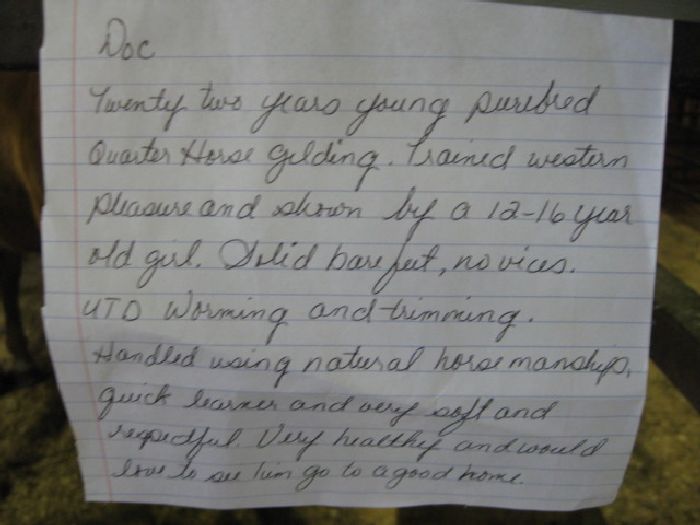 Doc
Twenty two years young purebred
Quarter Horse gelding. Trained western
pleasure and shown by a 12-16 year
old girl. Solid bare feet, no vices.
UTD Worming and trimming.
Handled using natural horsemanship,
quick learner and very soft and
respectful. Very healthy and would
love to see him go to a good home.